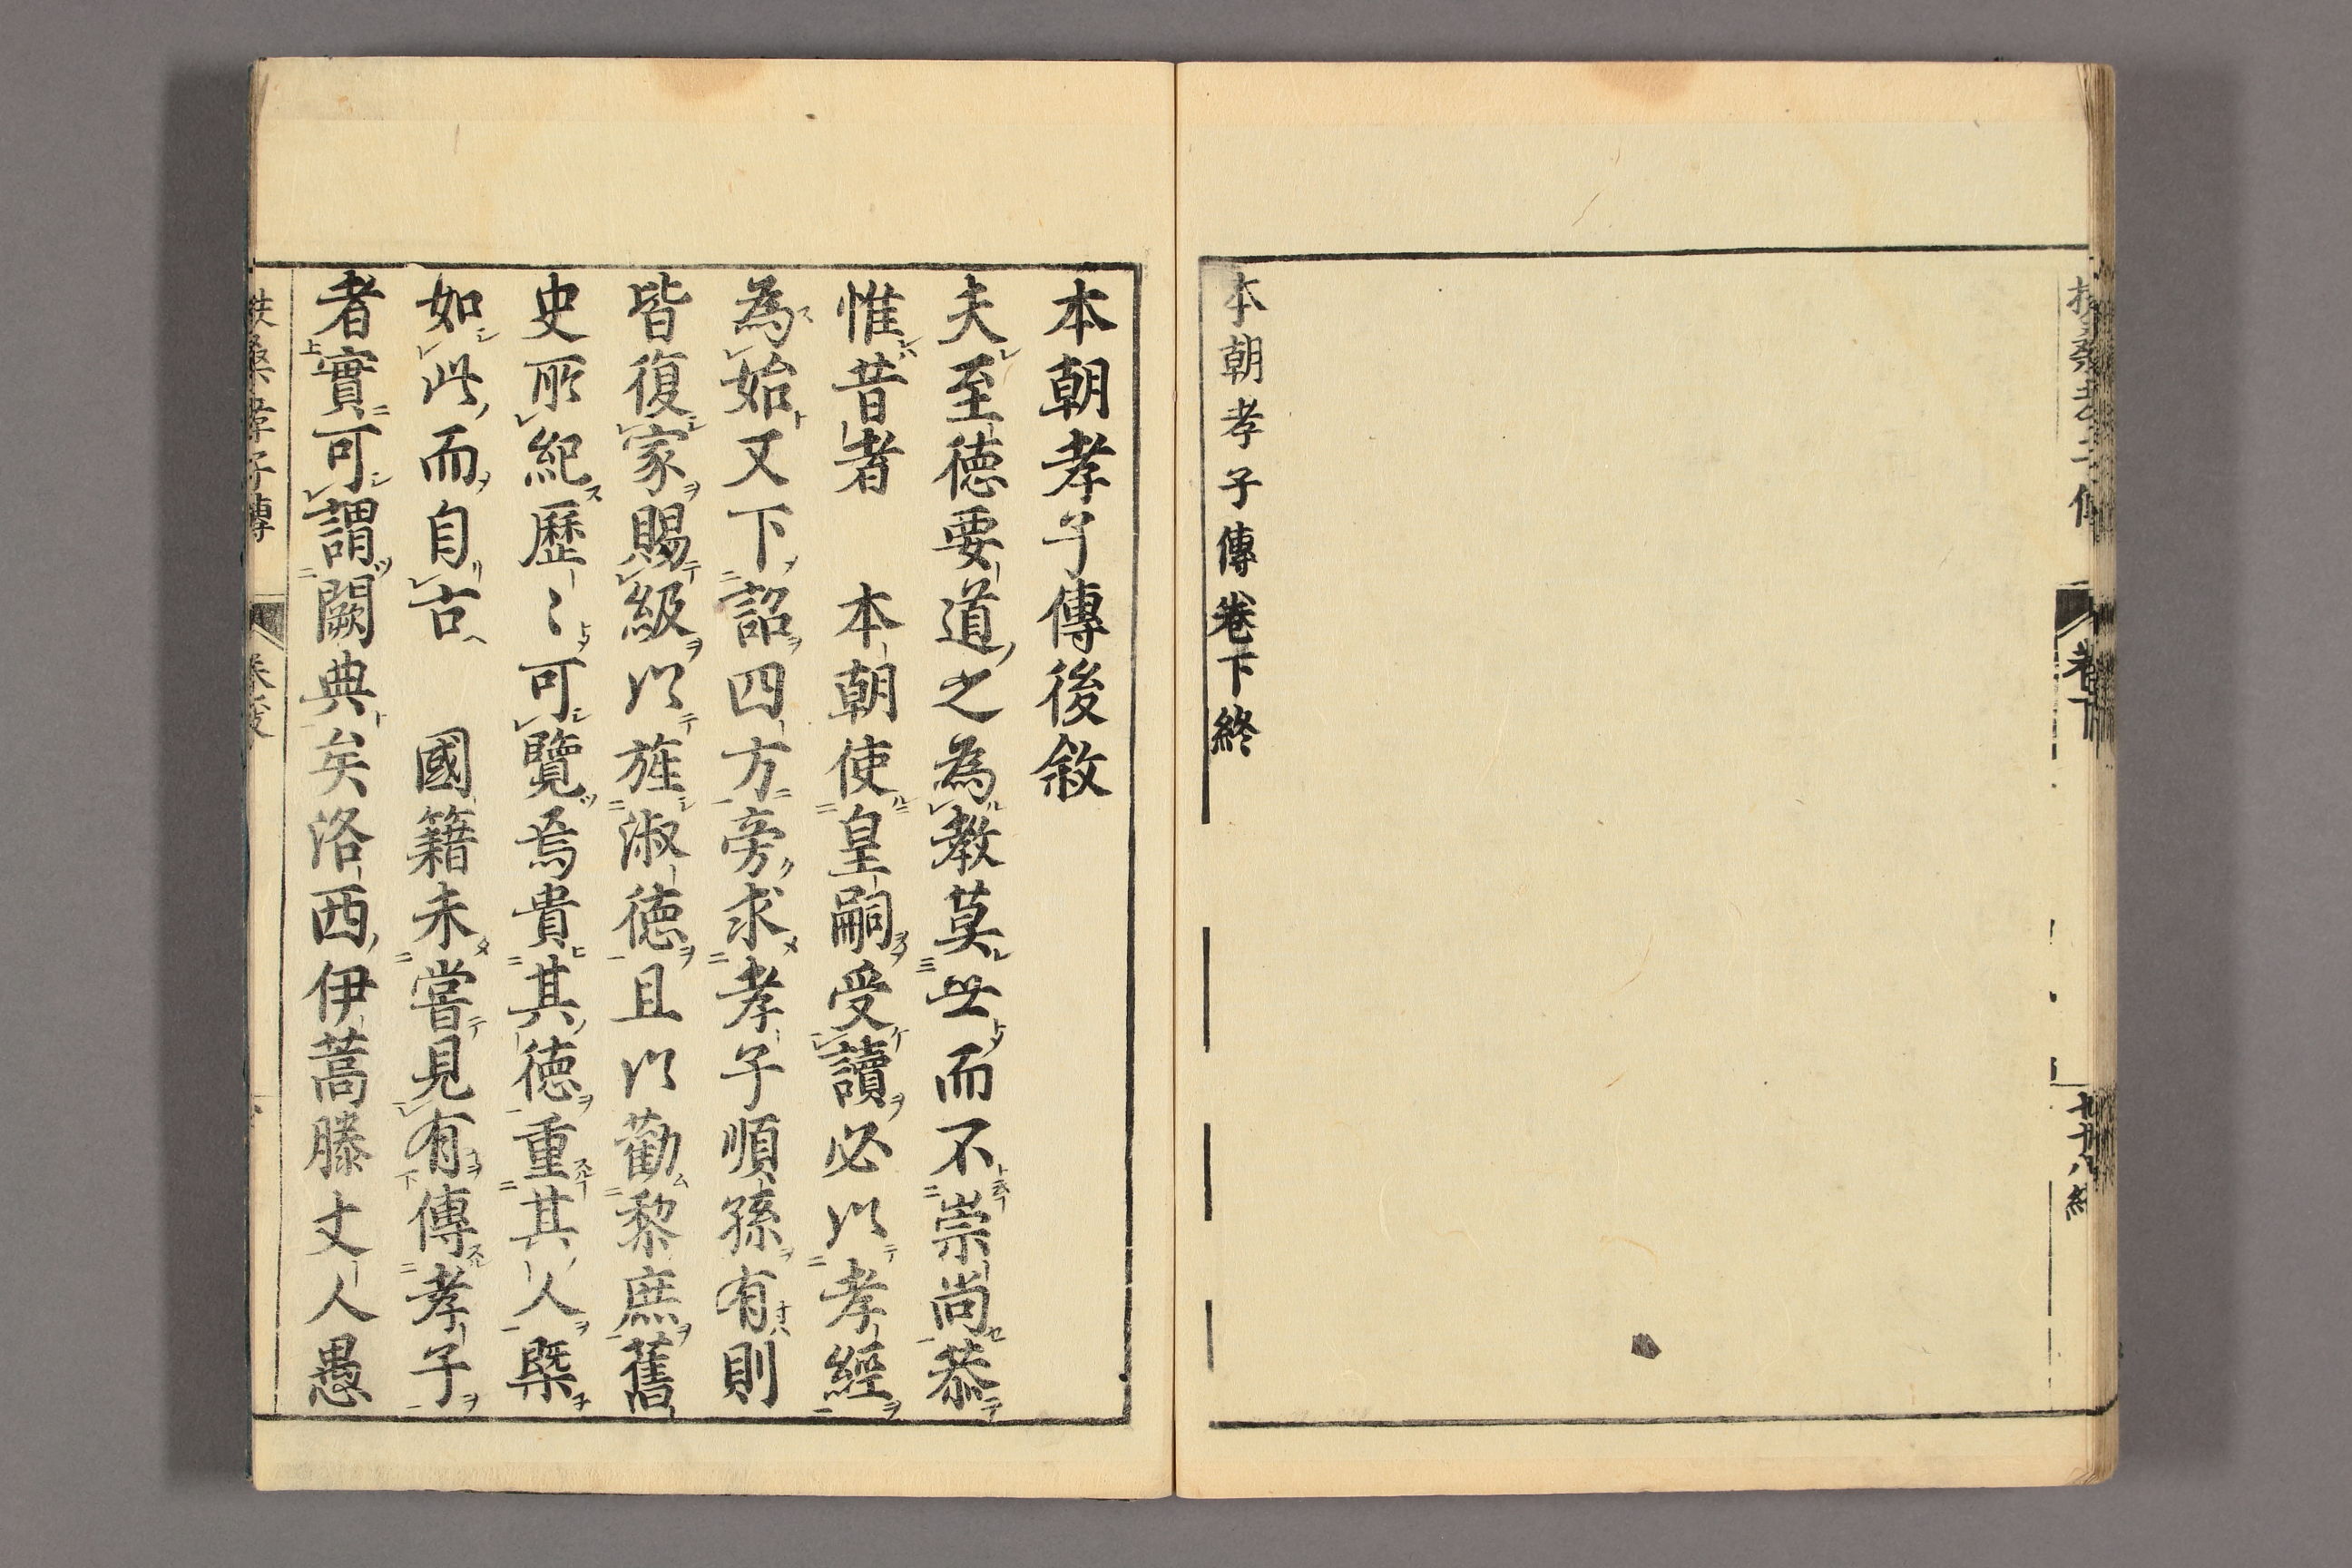 本朝孝子傳卷下終
本朝孝子傳後敘
夫至德要道之為教莫㘴而不崇尚恭
惟昔者　本朝使皇嗣受讀必以孝經
為始又下詔四方旁求孝子順孫有則
皆復家賜級以旌淑德且以勸黎庶舊
史所紀歷〻可覽焉貴其德重其人槩
如此而自古　國籍未嘗見有傳孝子
者實可謂闕典矣洛西伊蒿滕丈人愚